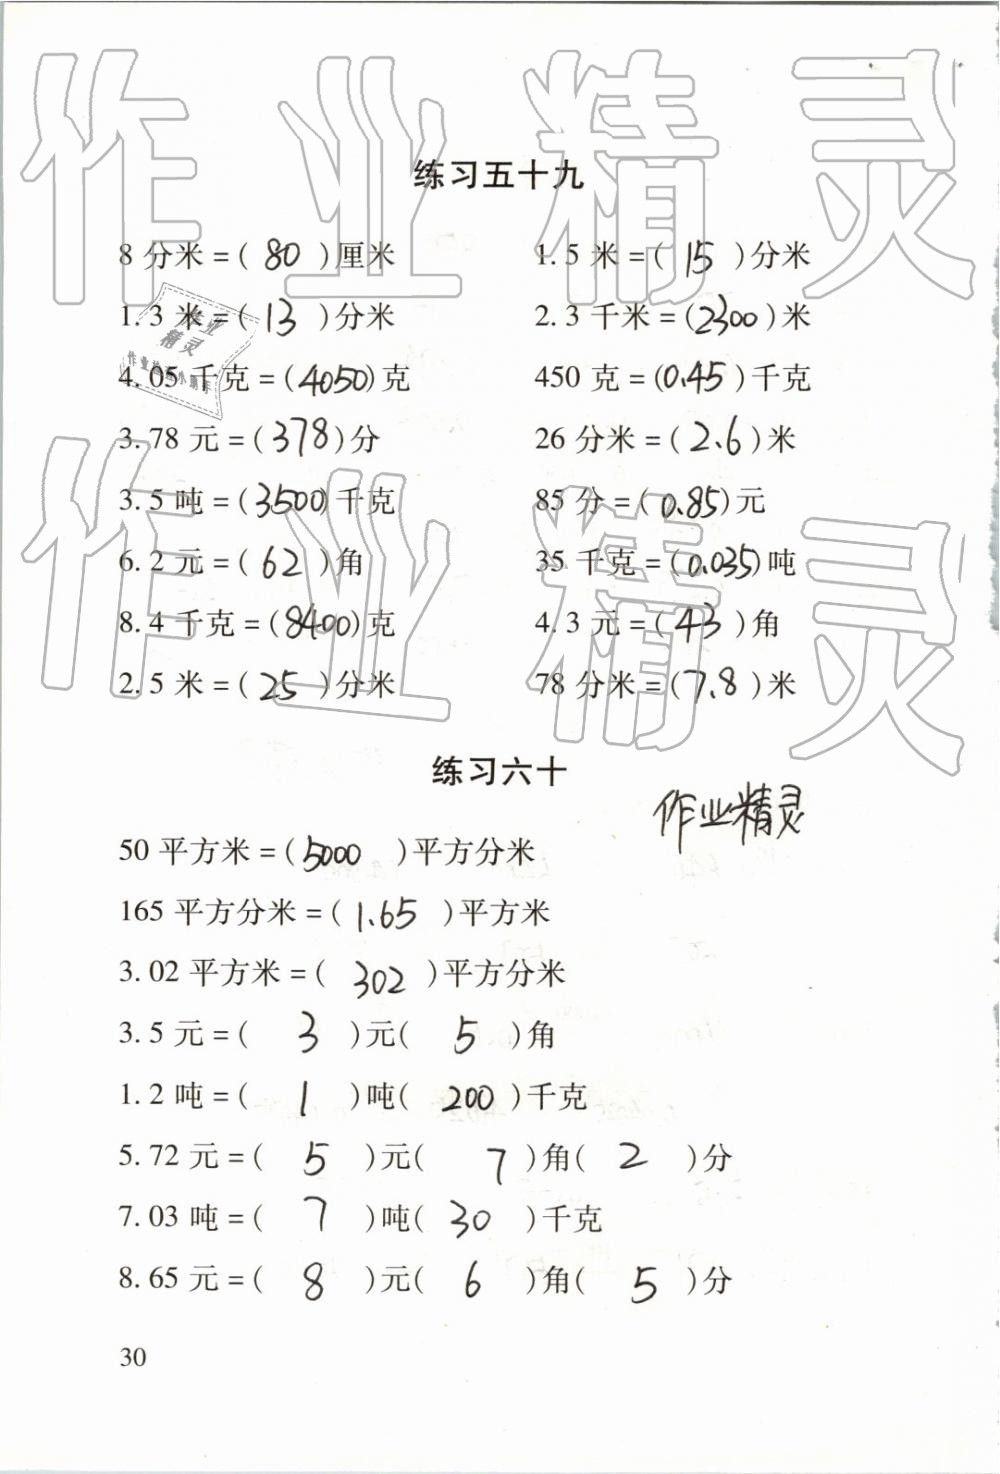 作业精灵
练习五十九
8 分米 = ( 80 )厘米 1.5 米 = ( 15 )分米
1.3 米 = ( 13 )分米 2.3 千米 = (2300)米
4.05 千克 = (4050)克 450 克 = (0.45)千克
3.78 元 = (378)分 26 分米 = (2.6)米
3.5 吨 = (3500)千克 85 分 = (0.85)元
6.2 元 = ( 62 )角 35 千克 = (0.035)吨
8.4 千克 = (8400)克 4.3 元 = (43)角
2.5 米 = ( 25 )分米 78 分米 = (7.8)米
作业精灵
练习六十
作业精灵
50 平方米 = ( 5000 )平方分米
165 平方分米 = ( 1.65 )平方米
3.02 平方米 = ( 302 )平方分米
3.5 元 = ( 3 )元( 5 )角
1.2 吨 = ( 1 )吨( 200 )千克
5.72 元 = ( 5 )元( 7 )角( 2 )分
7.03 吨 = ( 7 )吨( 30 )千克
8.65 元 = ( 8 )元( 6 )角( 5 )分
30